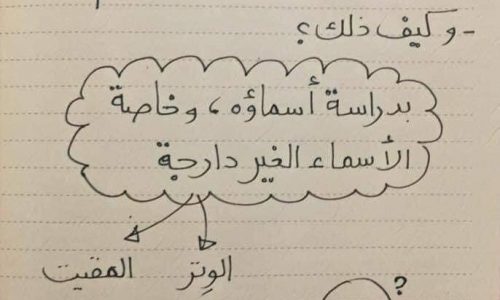 - وكيف ذلك؟
بدراسة أسماؤه، وخاصة
الأسماء الغير دارجة
الوِتر المقيت
?